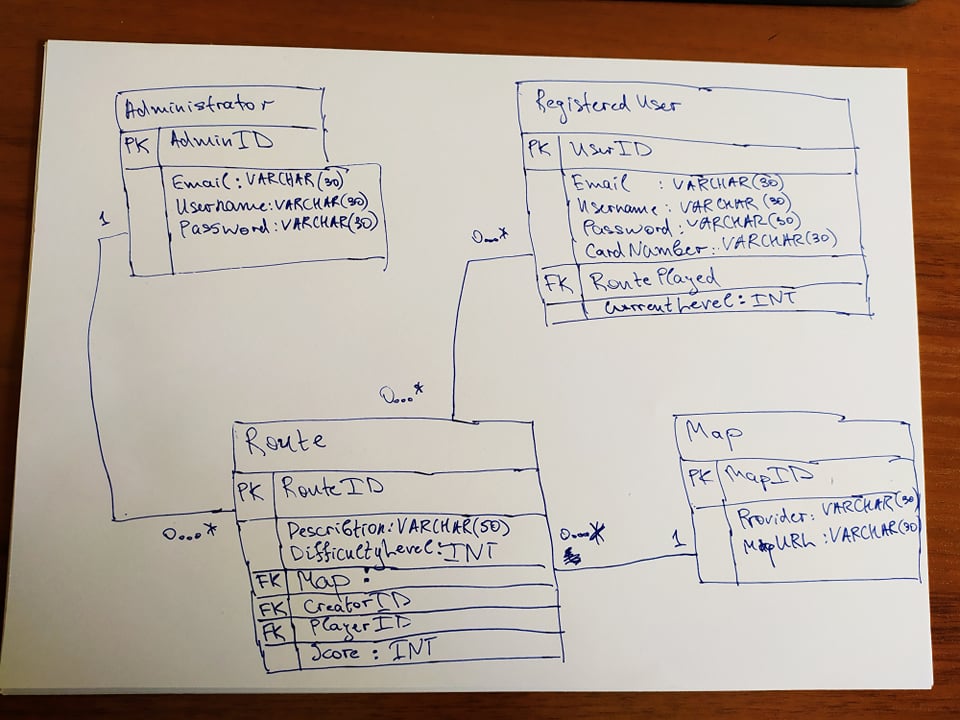 Administrator
PK AdminID
Email: VARCHAR(30)
Username: VARCHAR(30)
Password: VARCHAR(30)
1
Registered User
PK UserID
Email : VARCHAR(30)
Username: VARCHAR(30)
Password: VARCHAR(30)
CardNumber: VARCHAR(30)
FK Route Played
CurrentLevel: INT
0...*
0...*
Route
PK RouteID
Describtion: VARCHAR(50)
DifficultyLevel: INT
FK Map :
FK CreatorID
FK PlayerID
Score : INT
0...*
0...*
1
Map
PK MapID
Provider: VARCHAR(30)
MapURL : VARCHAR(30)